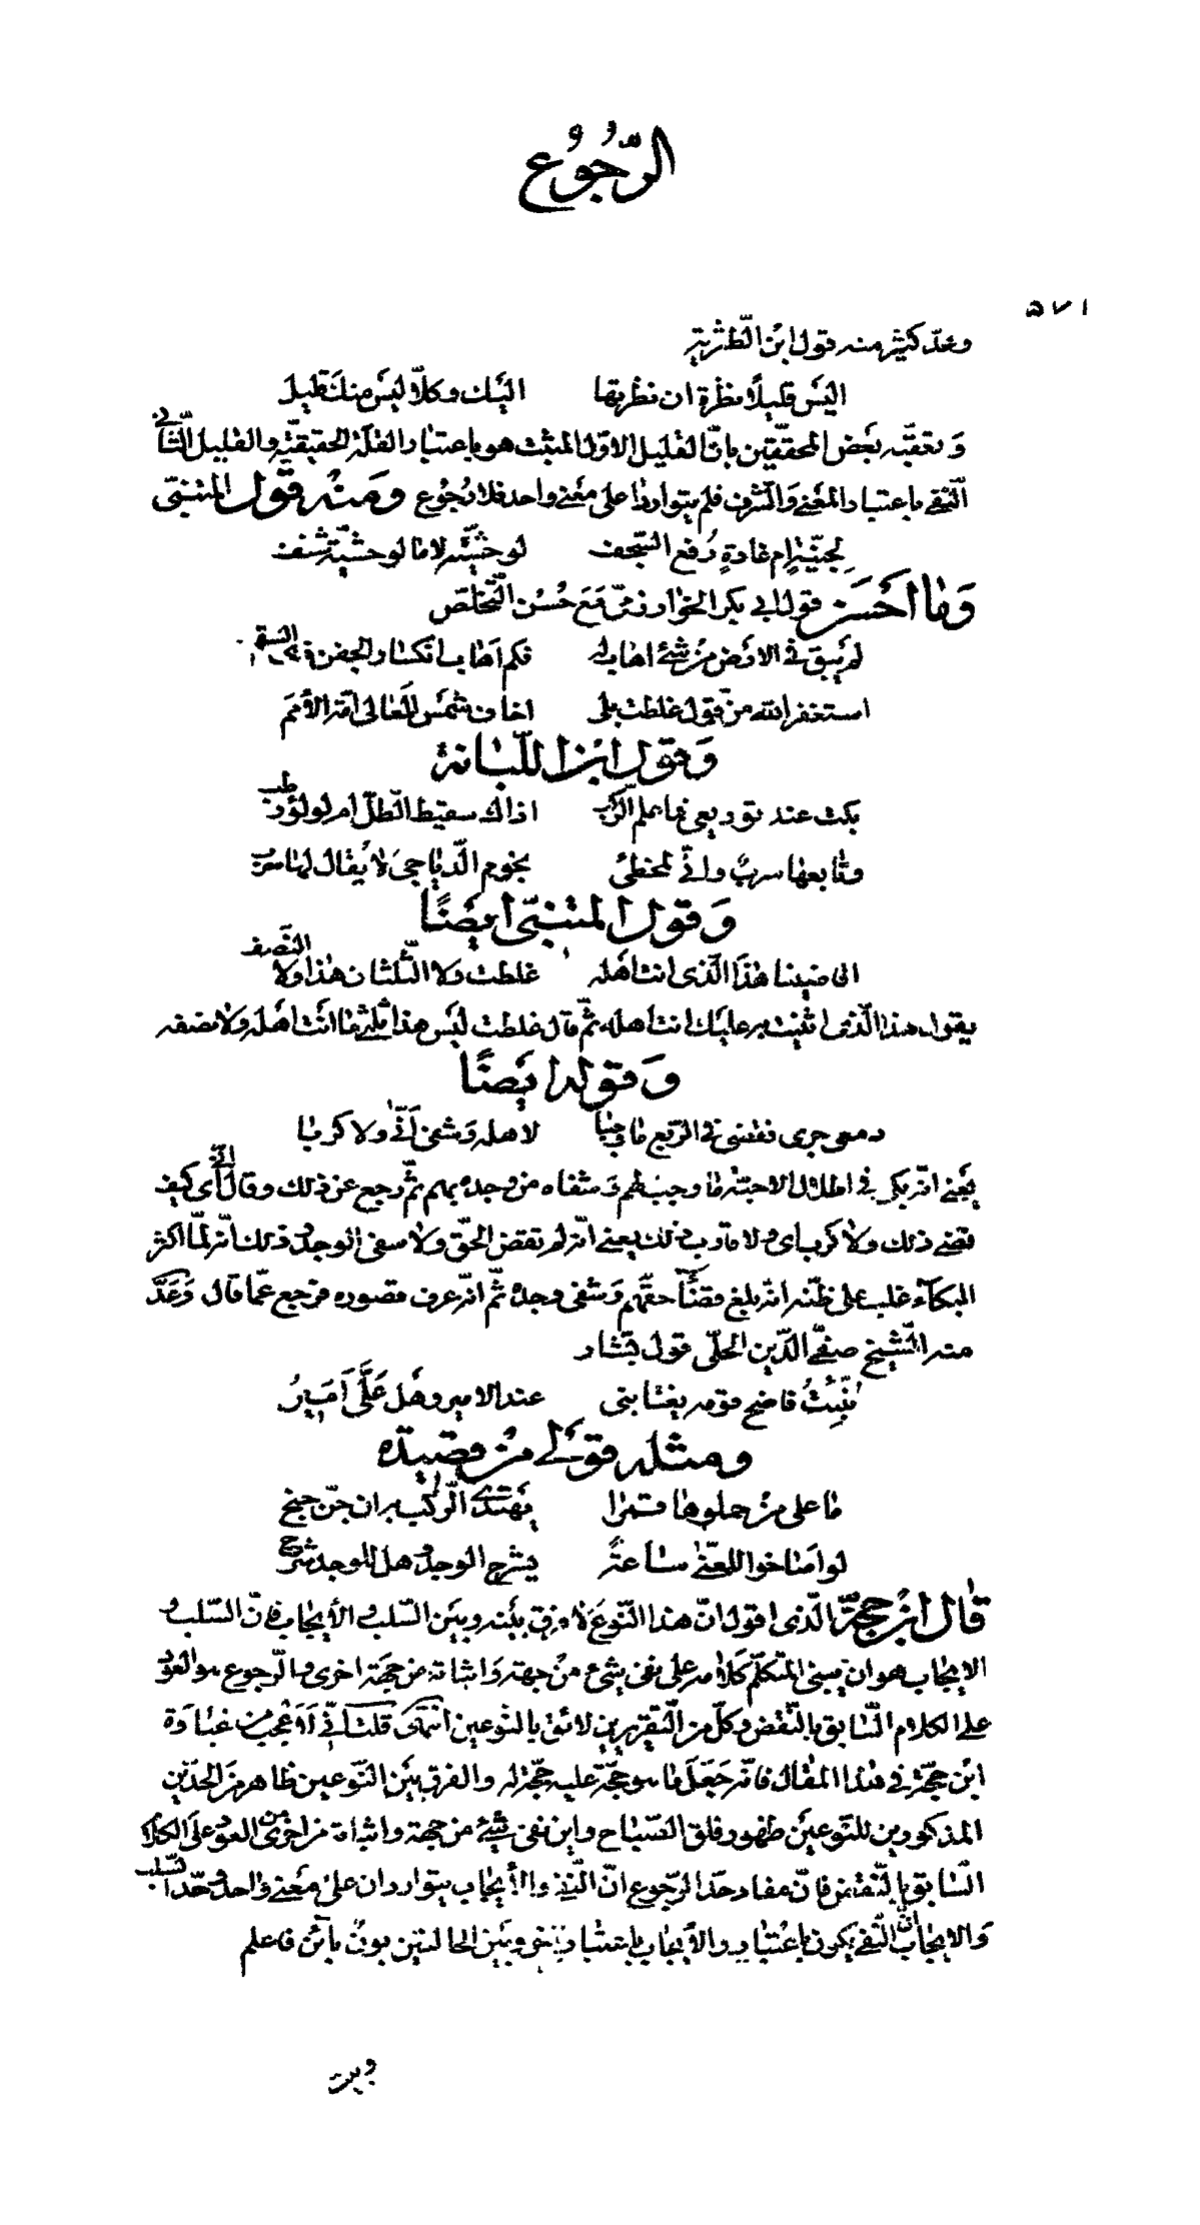 الرّجُوُع
٥٧١
وعدّ كثير منه قول ابن الطّثريّة
اليَس قليلًا نظرة ان نظرتها اليَك وكلّا ليَس منك قليل
وَتعقبّه بعَض المحققّين بانّ القليل الاوّل المثبت هو باعتبار القلّة الحقيقيّة والقليل الثّاني
المنفي باعتبار المعَنى وَالشّرف فلم يتواردا على معَنى واحد فلا رُجُوع ومَنه قوَل المتنبّي
لِجنّيّةٍ ام غادةٍ رُفع السّجف لوحَشيّة لا ما لوحشيّة شنف
وَمَا احَسَن قول ابي بكر الخوارزمىّ مَع حُسُن التّخلّص
لم يَبق في الارَض مِن شئ اهابه فلم اَهاب انكسار الجفن ذي السّقم
استغفر الله من قولى غلطت بلى اخاف شمَس المَعالى امّة الأمَم
وَقول ابن اللّبانة
بكت عند توديعى فما علم الرّكب اذاك سقيط الطّلّ ام لولؤ رطب
وتابعها سربٌ وانّي لمخطئ نجوم الدّياجىَ لا يُقال لها سربٌ
وَقول المتنبّى ايَضًا
الى ضيفنا هذا الّذى انت اهَله غلطت ولا الثّلثان هذا ولا النّصف
يقول هذا الّذى اثنيت به عليَك انت اهله ثمّ قال غلطت ليَس هذا ثلثى ما انَت اهَله ولا نصفه
وَقوله ايَضًا
دمع جرى فقضى في الرّبع ما وجبا لاهله وَشفى اَنّى ولا كربا
يعَني انّه بكى في اطلال الاحبّة ما وجب لهم وَشفاه من وجده بهم ثمّ رجع عن ذلك وقال انّى اى كيف
قضى ذلك ولا كرب اى ولا قارب ذلك يعنى انّه لم يقض الحقّ ولا شفى الوجد وذلك انّه لمّا اكثر
البكآء غلب على ظنّه انّه بلغ قضَآء حقّهم وَشفى وجده ثمّ انّه عرف قصوره فرجع عمّا قال وَعَدَّ
منه الشّيخ صفىّ الدّين الحلّى قول بشّار
نُبّئتُ فاضح قومه يغتابنى عند الامير وهَل عَلَّى اَمَيرُ
ومثله قوَلى من قصيدة
ما على من حملوها قمرا يَهتدى الرّكب به ان جنّ جنح
لو اصاخوا للمعنّى ساعةً يشرح الوجد وهل للوجد شرح
قال ابن حجّة الّذى اقول انّ هذا النّوَع لا فرق بيَنه وبيَن السّلب والأيجاب فانّ السّلب و
الايجاب هو ان يبنى المتكلّم كَلامه على نفى شئ من جهة وَاثباته من جهَة اخرى والرّجوع هو العود
على الكلام السّابق بالنّقض وكلّ من التّقريرين لائق بالنّوعين انتهى قلت انّي لاَعَجب من غباوَة
ابن حجّة في هذا المقال فانّه جَعَلَ ما هو حجّة عليه حجّة له والفرق بيَن النّوعين ظاهر من الحدّين
المذكورين للنّوعيَن ظهور فلق الصّباح واين نفى شئ من جهة واثباته من اخرى من العود على الكلام
السّابق بالنّقض فانّ مفاد حدّ الرّجوع انّ النّفي والأيجاب يتواردان على معَنى واحد وحدّ السّلب
وَالايجاب انّ النّفي يكون باعتبار والأيجاب باعتبار اخر وبيَن الحالتين بونٌ بائن فاعلم
وبيت